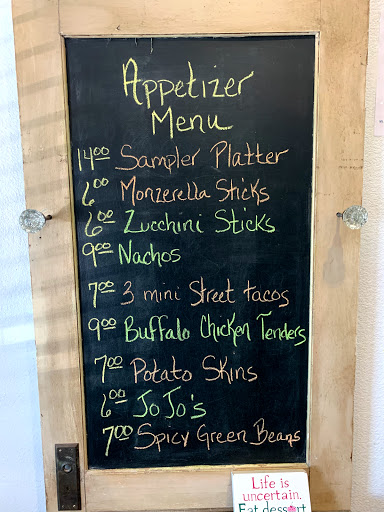 Appetizer
Menu
14.00 Sampler Platter
6.00 Monzerella Sticks
6.00 Zucchini Sticks
9.00 Nachos
7.00 3 mini Street tacos
9.00 Buffalo Chicken Tenders
7.00 Potato Skins
6.00 JoJo's
7.00 Spicy Green Beans
Life is
uncertain.
Eat dessert